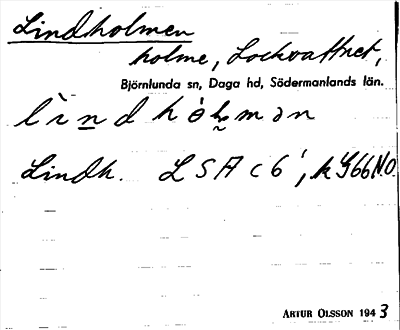 Lindholmen
holme, Lockvattnet,
Björnlunda sn, Daga hd, Södermanlands län.
lìndhò̥lmən
Lindh. LSA c6', k G66 N.O.
ARTUR OLSSON 1943